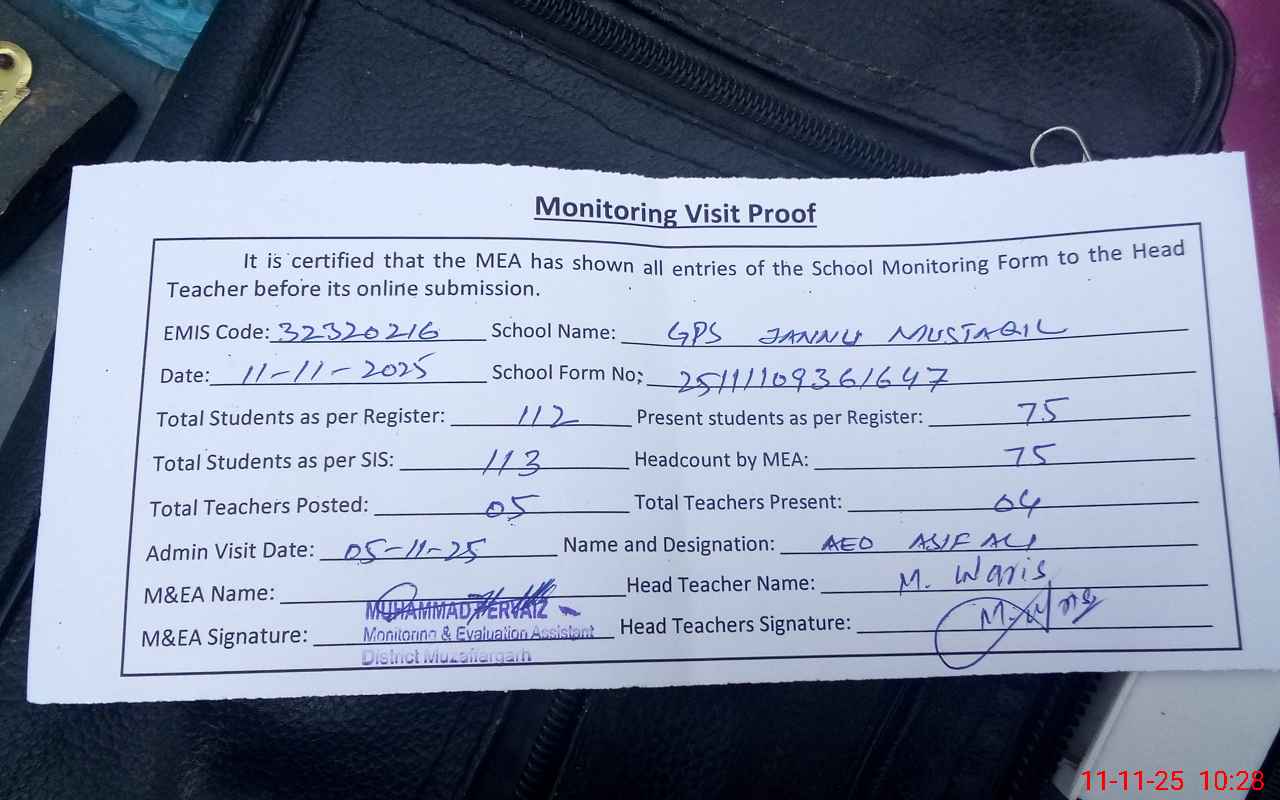 Monitoring Visit Proof
It is certified that the MEA has shown all entries of the School Monitoring Form to the Head
Teacher before its online submission.
EMIS Code: 32320216 School Name: GPS JANNU MUSTAQIL
Date: 11-11-2025 School Form No: 25111109361647
Total Students as per Register: 112 Present students as per Register: 75
Total Students as per SIS: 113 Headcount by MEA: 75
Total Teachers Posted: 05 Total Teachers Present: 04
Admin Visit Date: 05-11-25 Name and Designation: AEO ASIF ALI
M&EA Name: Head Teacher Name: M. Waris
MUHAMMAD PERVAIZ
M&EA Signature: Monitoring & Evaluation Assistant Head Teachers Signature: M. Waris
District Muzaffargarh
11-11-25 10:28